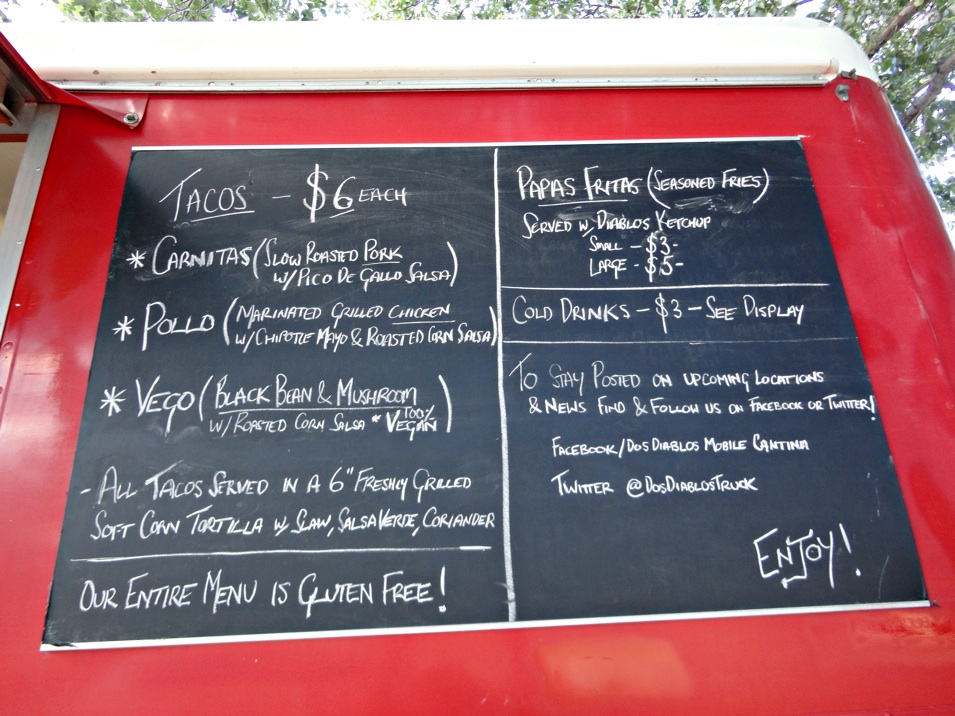 TACOS - $6 EACH
* CARNITAS (SLOW ROASTED PORK
W/ PICO DE GALLO SALSA)
* POLLO (MARINATED GRILLED CHICKEN
W/ CHIPOTLE MAYO & ROASTED CORN SALSA)
* VEGO (BLACK BEAN & MUSHROOM
W/ ROASTED CORN SALSA * 100% VEGAN)
- ALL TACOS SERVED IN A 6" FRESHLY GRILLED
SOFT CORN TORTILLA W/ SLAW, SALSA VERDE, CORIANDER
OUR ENTIRE MENU IS GLUTEN FREE!
PAPAS FRITAS (SEASONED FRIES)
SERVED W/ DIABLOS KETCHUP
SMALL - $3-
LARGE - $5-
COLD DRINKS - $3 - SEE DISPLAY
TO STAY POSTED ON UPCOMING LOCATIONS
& NEWS FIND & FOLLOW US ON FACEBOOK OR TWITTER!
FACEBOOK/DOS DIABLOS MOBILE CANTINA
TWITTER @DOSDIABLOSTRUCK
ENJOY!